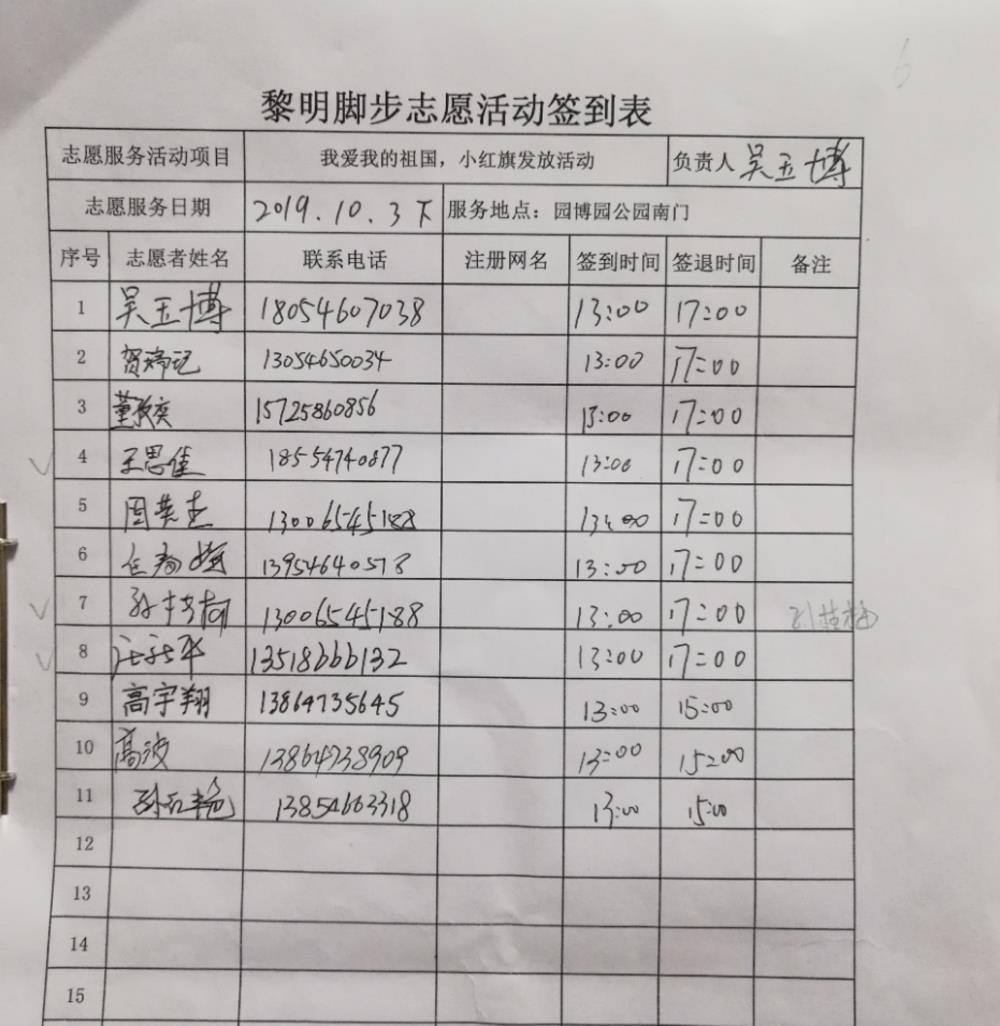 6
黎明脚步志愿活动签到表
志愿服务活动项目 我爱我的祖国，小红旗发放活动 负责人 吴玉博
志愿服务日期 2019.10.3下 服务地点：园博园公园南门
序号 志愿者姓名 联系电话 注册网名 签到时间 签退时间 备注
1 吴玉博 18054607038 13:00 17:00
2 贺瑞记 13054650034 13:00 17:00
3 董 15725860856 13:00 17:00
4 王思佳 18554740877 13:00 17:00
5 周英杰 13006545188 13:00 17:00
6 任 13954640578 13:00 17:00
7 孙 13006545188 13:00 17:00
8 13518666132 13:00 17:00
9 高宇翔 13864735645 13:00 15:00
10 高波 13864738909 13:00 15:00
11 孙红艳 13854663318 13:00 15:00
12
13
14
15